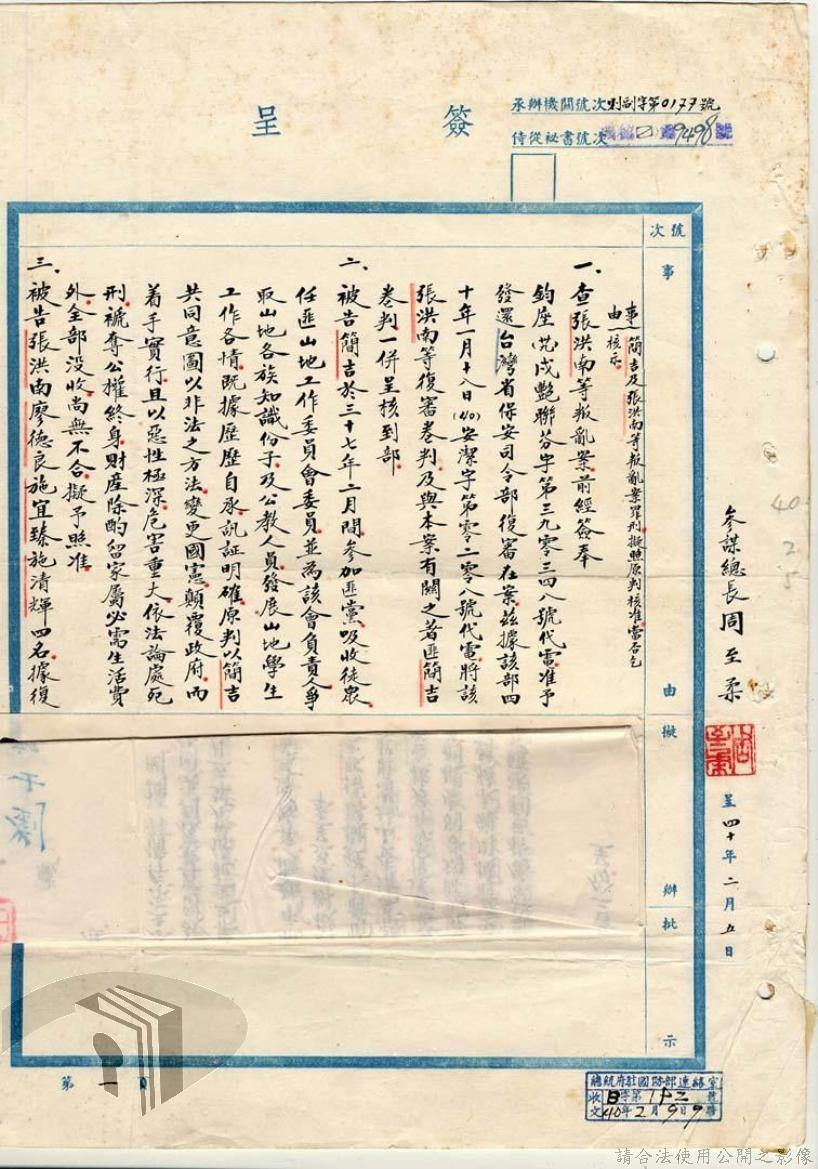 簽呈
承辦機關號次 則副字第0177號
侍從祕書號次 9498號
參謀總長周至柔
呈四十年二月五日
40
2
5
號次
事由擬辦批示
事由
簡吉及張洪南等叛亂案罪刑擬照原判核准當否乞
核示
一、查張洪南等叛亂案前經簽奉
鈞座卅九戌艷聯芬字第三九零三四八號代電准予
發還台灣省保安司令部復審在案茲據該部四
十年一月十八日(40)安潔字第零二零八號代電將該
張洪南等復審卷判及與本案有關之著匪簡吉
卷判一併呈核到部
二、被告簡吉於三十七年二月間參加匪黨吸收徒眾
任匪山地工作委員會委員並為該會負責人爭
取山地各族知識份子及公教人員發展山地學生
工作各情既據歷歷自承訊証明確原判以簡吉
共同意圖以非法之方法變更國憲顛覆政府而
着手實行且以惡性極深危害重大依法論處死
刑褫奪公權終身財產除酌留家屬必需生活費
外全部沒收尚無不合擬予照准
三、被告張洪南廖德良施宜臻施清輝四名據復
第一頁
總統府駐國防部連絡室
收文 字第 號
40年2月9日9時
請合法使用公開之影像